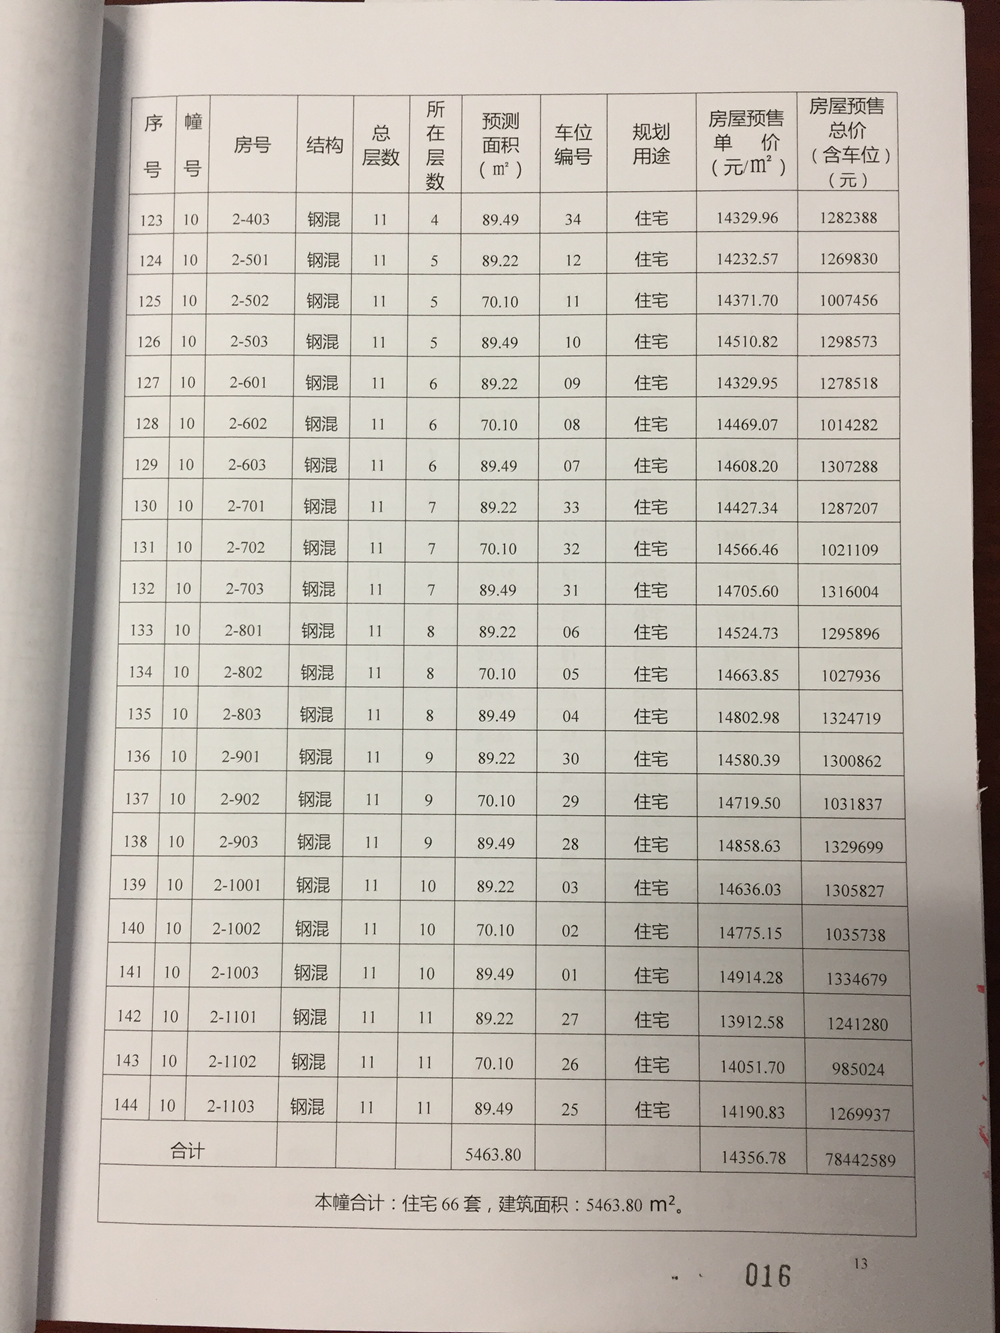 序号 幢号 房号 结构 总层数 所在层数 预测面积（㎡） 车位编号 规划用途 房屋预售单价（元/㎡） 房屋预售总价（含车位）（元）
123 10 2-403 钢混 11 4 89.49 34 住宅 14329.96 1282388
124 10 2-501 钢混 11 5 89.22 12 住宅 14232.57 1269830
125 10 2-502 钢混 11 5 70.10 11 住宅 14371.70 1007456
126 10 2-503 钢混 11 5 89.49 10 住宅 14510.82 1298573
127 10 2-601 钢混 11 6 89.22 09 住宅 14329.95 1278518
128 10 2-602 钢混 11 6 70.10 08 住宅 14469.07 1014282
129 10 2-603 钢混 11 6 89.49 07 住宅 14608.20 1307288
130 10 2-701 钢混 11 7 89.22 33 住宅 14427.34 1287207
131 10 2-702 钢混 11 7 70.10 32 住宅 14566.46 1021109
132 10 2-703 钢混 11 7 89.49 31 住宅 14705.60 1316004
133 10 2-801 钢混 11 8 89.22 06 住宅 14524.73 1295896
134 10 2-802 钢混 11 8 70.10 05 住宅 14663.85 1027936
135 10 2-803 钢混 11 8 89.49 04 住宅 14802.98 1324719
136 10 2-901 钢混 11 9 89.22 30 住宅 14580.39 1300862
137 10 2-902 钢混 11 9 70.10 29 住宅 14719.50 1031837
138 10 2-903 钢混 11 9 89.49 28 住宅 14858.63 1329699
139 10 2-1001 钢混 11 10 89.22 03 住宅 14636.03 1305827
140 10 2-1002 钢混 11 10 70.10 02 住宅 14775.15 1035738
141 10 2-1003 钢混 11 10 89.49 01 住宅 14914.28 1334679
142 10 2-1101 钢混 11 11 89.22 27 住宅 13912.58 1241280
143 10 2-1102 钢混 11 11 70.10 26 住宅 14051.70 985024
144 10 2-1103 钢混 11 11 89.49 25 住宅 14190.83 1269937
合计 5463.80 14356.78 78442589
本幢合计：住宅66套，建筑面积：5463.80 m²。
13
016